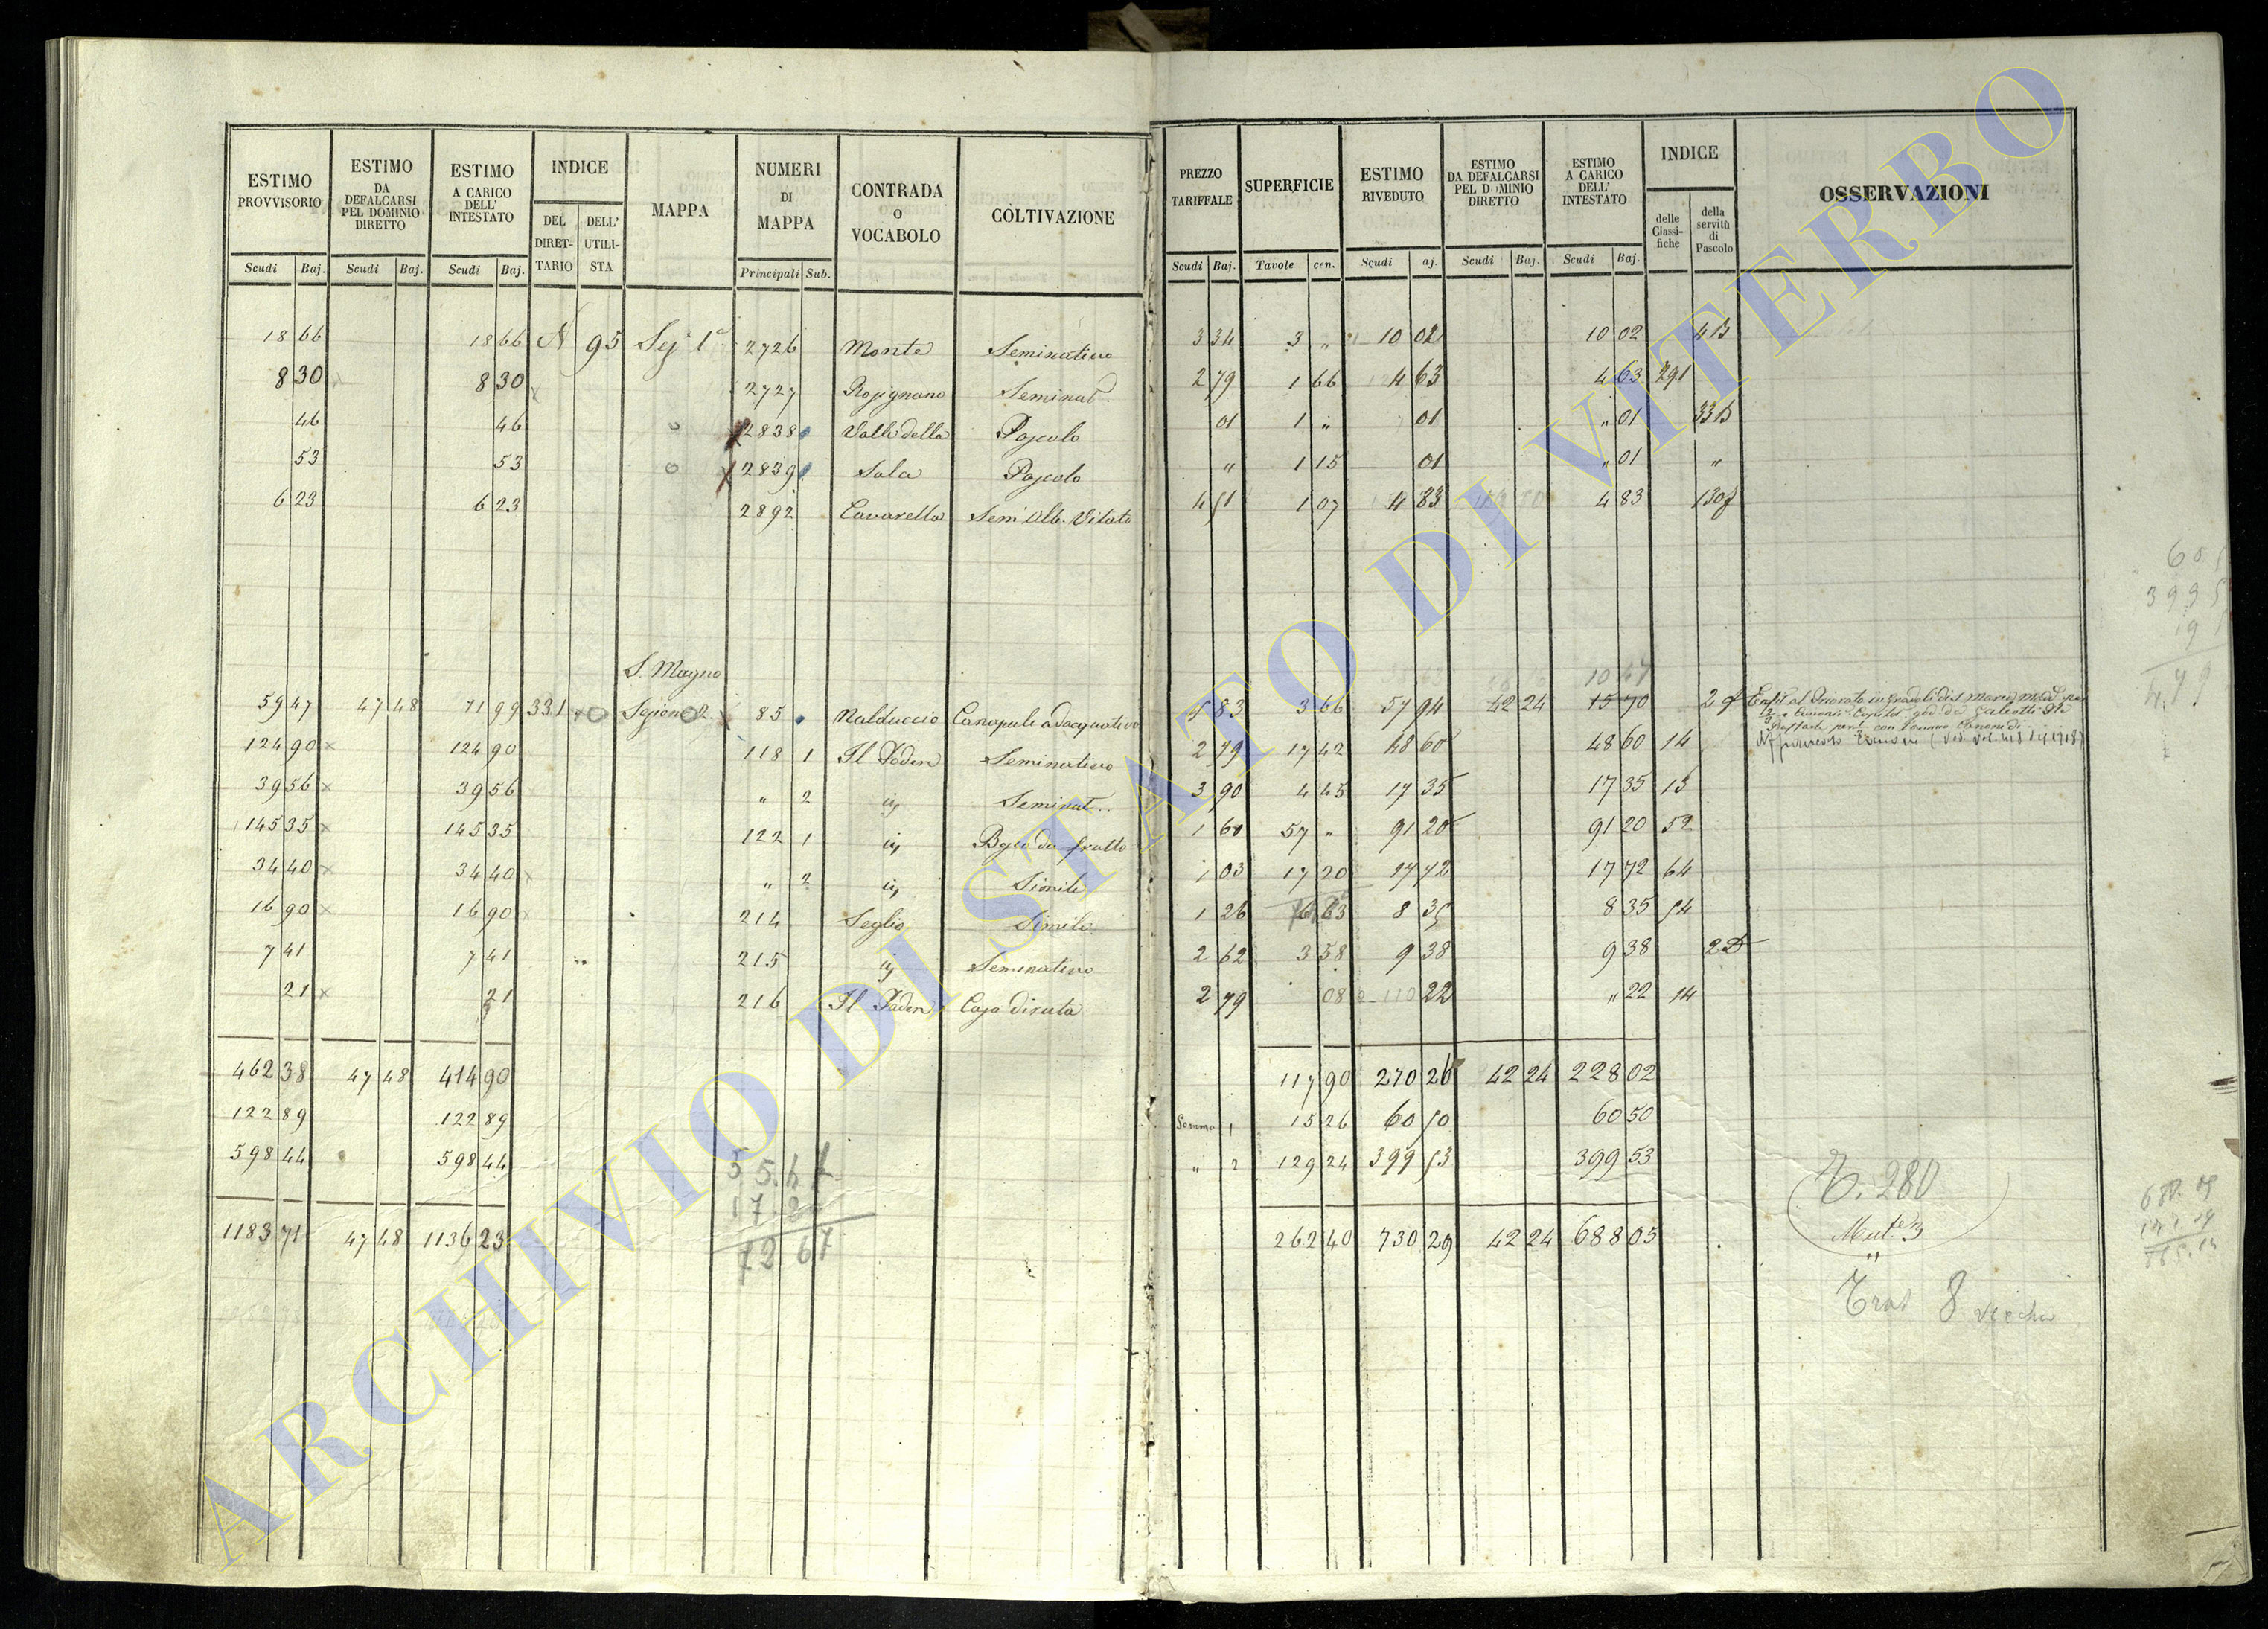 ESTIMO PROVVISORIO | ESTIMO DA DEFALCARSI PEL DOMINIO DIRETTO | ESTIMO A CARICO DELL' INTESTATO | INDICE | MAPPA | NUMERI DI MAPPA | CONTRADA O VOCABOLO | COLTIVAZIONE | PREZZO TARIFFALE | SUPERFICIE | ESTIMO RIVEDUTO | ESTIMO DA DEFALCARSI PEL DOMINIO DIRETTO | ESTIMO A CARICO DELL' INTESTATO | INDICE | OSSERVAZIONI
DEL DIRETTARIO | DELL' UTILISTA | delle Classifiche | della servitù di Pascolo
Scudi | Baj. | Scudi | Baj. | Scudi | Baj. | Principali | Sub. | Scudi | Baj. | Tavole | cen. | Scudi | aj. | Scudi | Baj. | Scudi | Baj.
18 66 | 18 66 | N 95 | Sez 1ª | 2726 | Monte | Seminativo | 3 34 | 3 " | 10 02 | 10 02 | 4B
8 30 | 8 30 | 2727 | Rosignano | Seminat. | 2 79 | 1 66 | 4 63 | 4 63 | 291
46 | 46 | 2838 | Valle della | Pascolo | 01 | 1 " | 01 | " 01 | 33B
53 | 53 | 2839 | Sala | Pascolo | " | 1 15 | 01 | " 01 | "
6 23 | 6 23 | 2892 | Cavarella | Sem Alb. Vitato | 4 51 | 1 07 | 4 83 | 4 83 | 130f
S. Magno
10 47
59 47 | 47 48 | 11 99 | 331 | Sezione 2. | 85 | Nalduccio | Canapule adacquativo | 3 66 | 57 94 | 42 24 | 15 70 | 2
124 90 | 124 90 | 118 1 | Il Poden | Seminativo | 2 79 | 17 42 | 48 60 | 48 60 | 14
39 56 | 39 56 | " 2 | iy | Seminat.. | 3 90 | 4 45 | 17 35 | 17 35 | 13
145 35 | 145 35 | 122 1 | iy | Bosco da frutto | 1 60 | 57 " | 91 20 | 91 20 | 52
34 40 | 34 40 | " 2 | iy | Simile | 1 03 | 17 20 | 17 72 | 17 72 | 64
16 90 | 16 90 | 214 | Seglio | Simile | 1 26 | 6 63 | 8 35 | 8 35 | 54
7 41 | 7 41 | 215 | iy | Seminativo | 2 62 | 3 58 | 9 38 | 9 38 | 2D
21 | 21 | 216 | Il Poden | Casa diruta | 2 79 | 08 | 22 | " 22 | 14
462 38 | 47 48 | 414 90 | 117 90 | 270 26 | 42 24 | 228 02
122 89 | 122 89 | Somma 1 | 15 26 | 60 50 | 60 50
598 44 | 598 44 | " 2 | 129 24 | 399 53 | 399 53
1183 71 | 47 48 | 1136 23 | 262 40 | 730 29 | 42 24 | 688 05
72 67
T. 280
Trat 8
ARCHIVIO DI STATO DI VITERBO